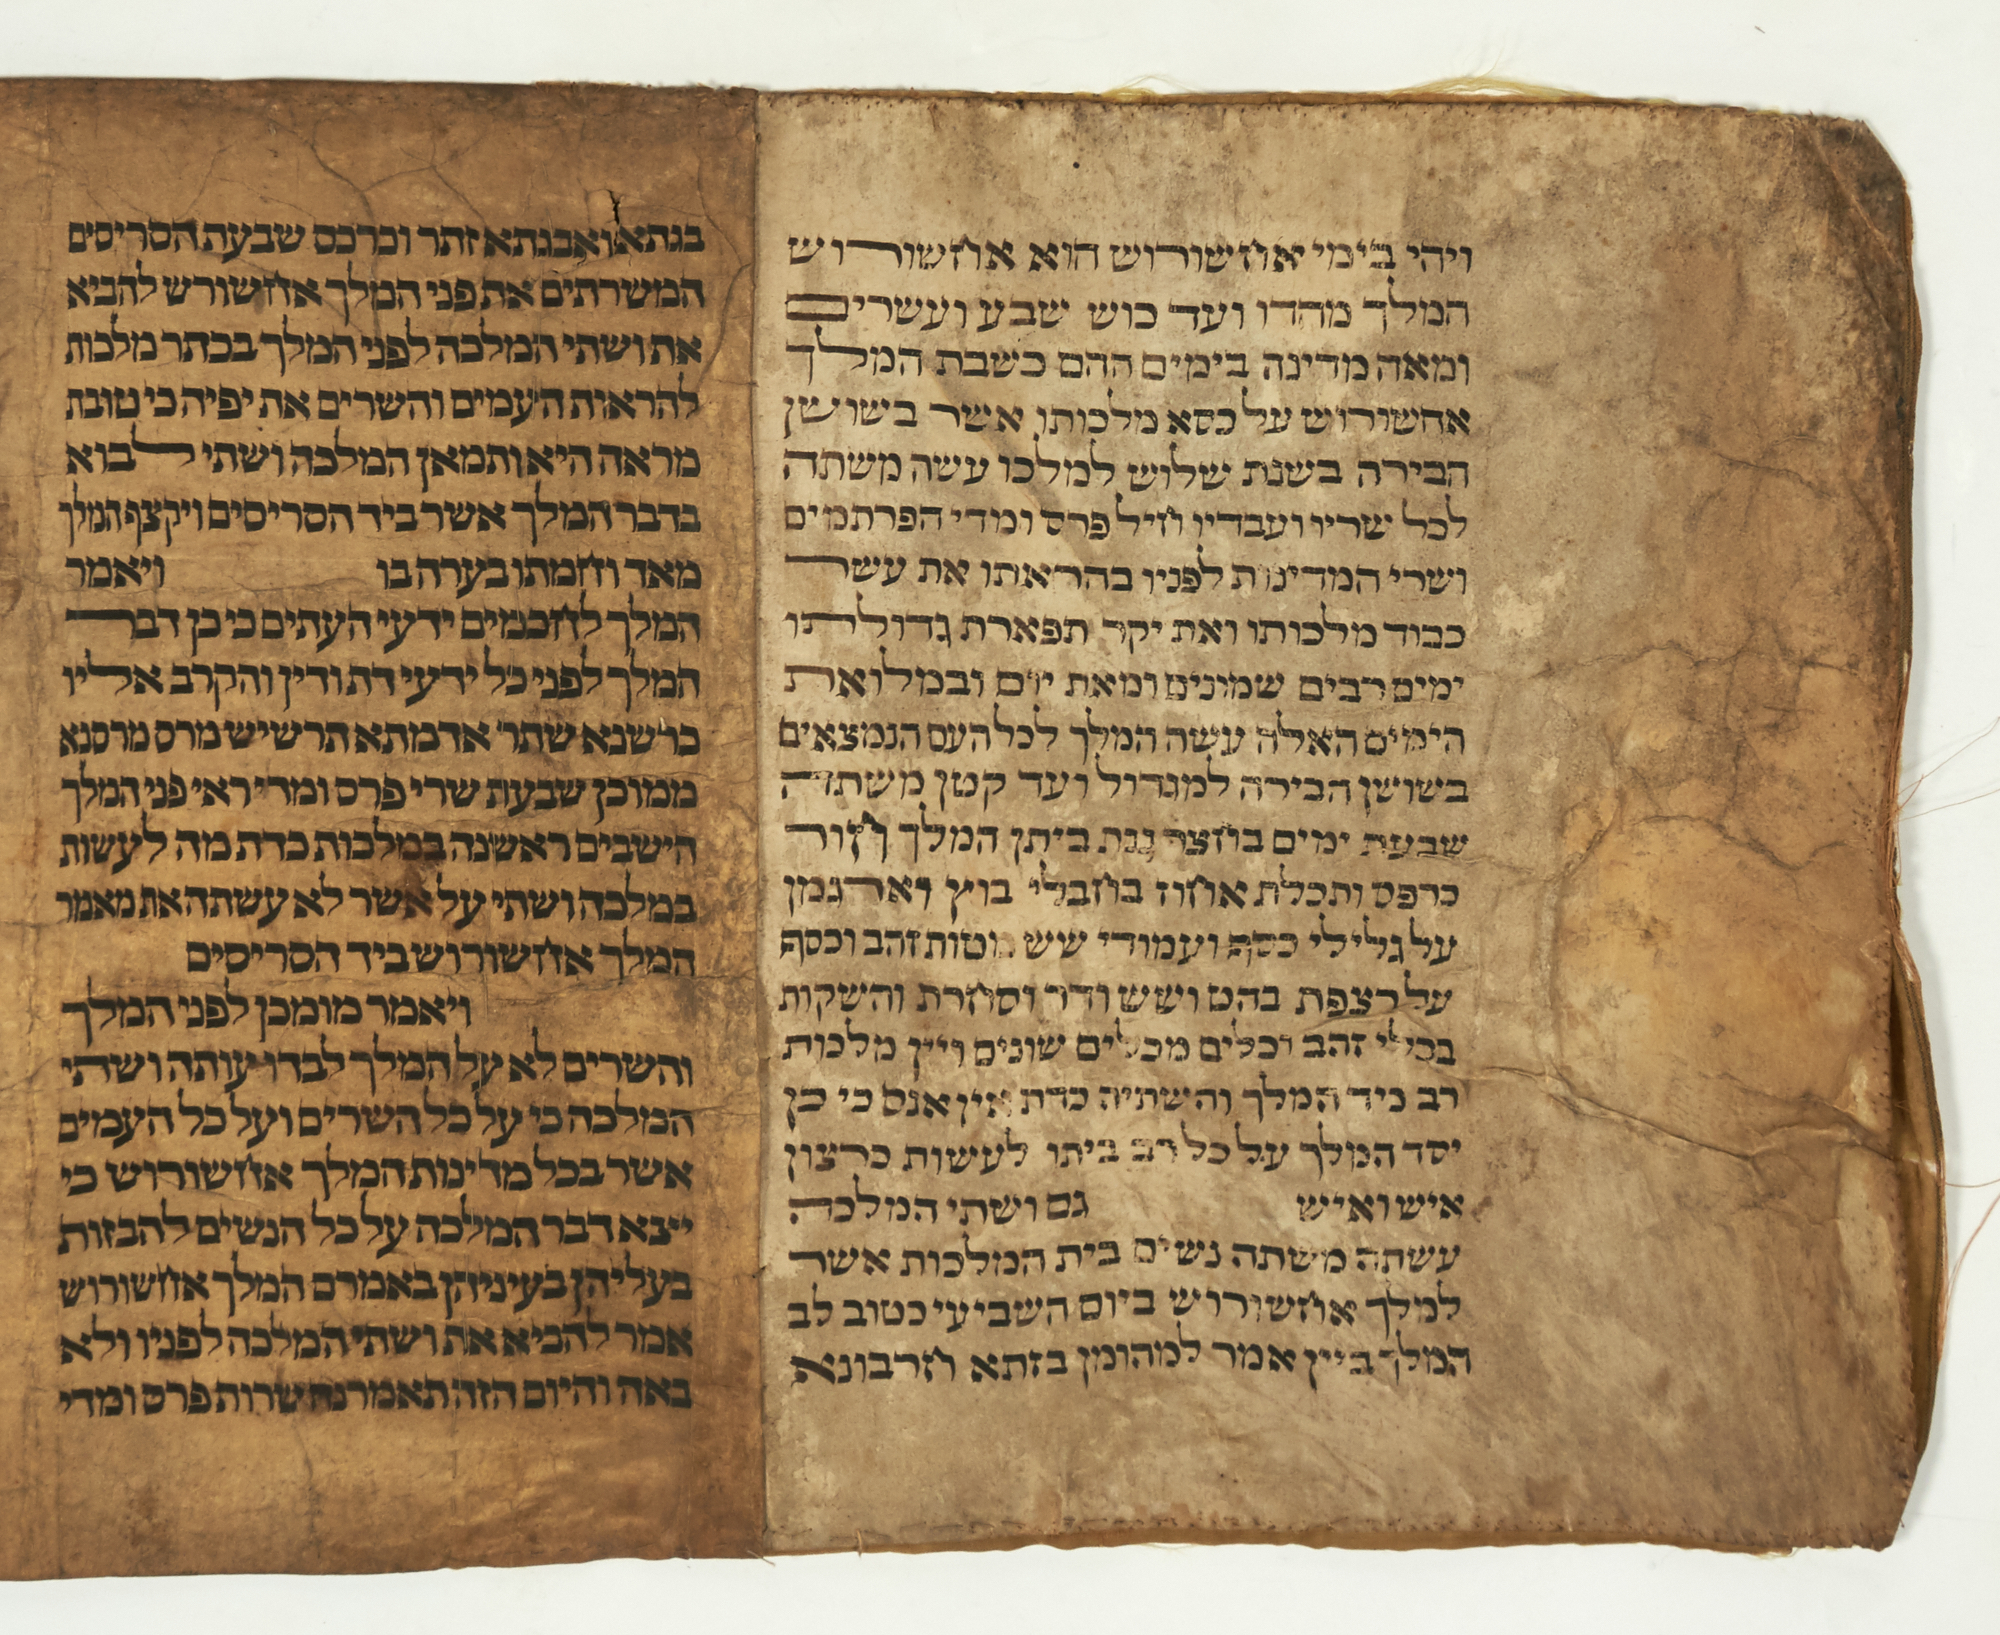 ויהי בימי אחשורוש הוא אחשורוש
המלך מהדו ועד כוש שבע ועשרים
ומאה מדינה בימים ההם כשבת המלך
אחשורוש על כסא מלכותו אשר בשושן
הבירה בשנת שלוש למלכו עשה משתה
לכל שריו ועבדיו חיל פרס ומדי הפרתמים
ושרי המדינות לפניו בהראתו את עשר
כבוד מלכותו ואת יקר תפארת גדולתו
ימים רבים שמונים ומאת יום ובמלואת
הימים האלה עשה המלך לכל העם הנמצאים
בשושן הבירה למגדול ועד קטן משתה
שבעת ימים בחצר גנת ביתן המלך חור
כרפס ותכלת אחוז בחבלי בוץ וארגמן
על גלילי כסף ועמודי שש מטות זהב וכסף
על רצפת בהט ושש ודר וסחרת והשקות
בכלי זהב וכלים מכלים שונים ויין מלכות
רב כיד המלך והשתיה כדת אין אנס כי כן
יסד המלך על כל רב ביתו לעשות כרצון
איש ואיש גם ושתי המלכה
עשתה משתה נשים בית המלכות אשר
למלך אחשורוש ביום השביעי כטוב לב
המלך ביין אמר למהומן בזתא חרבונא
בגתא ואבגתא זתר וכרכס שבעת הסריסים
המשרתים את פני המלך אחשורש להביא
את ושתי המלכה לפני המלך בכתר מלכות
להראות העמים והשרים את יפיה כי טובת
מראה היא ותמאן המלכה ושתי לבוא
בדבר המלך אשר ביד הסריסים ויקצף המלך
מאד וחמתו בערה בו ויאמר
המלך לחכמים ידעי העתים כי כן דבר
המלך לפני כל ידעי דת ודין והקרב אליו
כרשנא שתר אדמתא תרשיש מרס מרסנא
ממוכן שבעת שרי פרס ומדי ראי פני המלך
הישבים ראשנה במלכות כדת מה לעשות
במלכה ושתי על אשר לא עשתה את מאמר
המלך אחשורוש ביד הסריסים
ויאמר מומכן לפני המלך
והשרים לא על המלך לבדו עותה ושתי
המלכה כי על כל השרים ועל כל העמים
אשר בכל מדינות המלך אחשורוש כי
יצא דבר המלכה על כל הנשים להבזות
בעליהן בעיניהן באמרם המלך אחשורוש
אמר להביא את ושתי המלכה לפניו ולא
באה והיום הזה תאמרנה שרות פרס ומדי